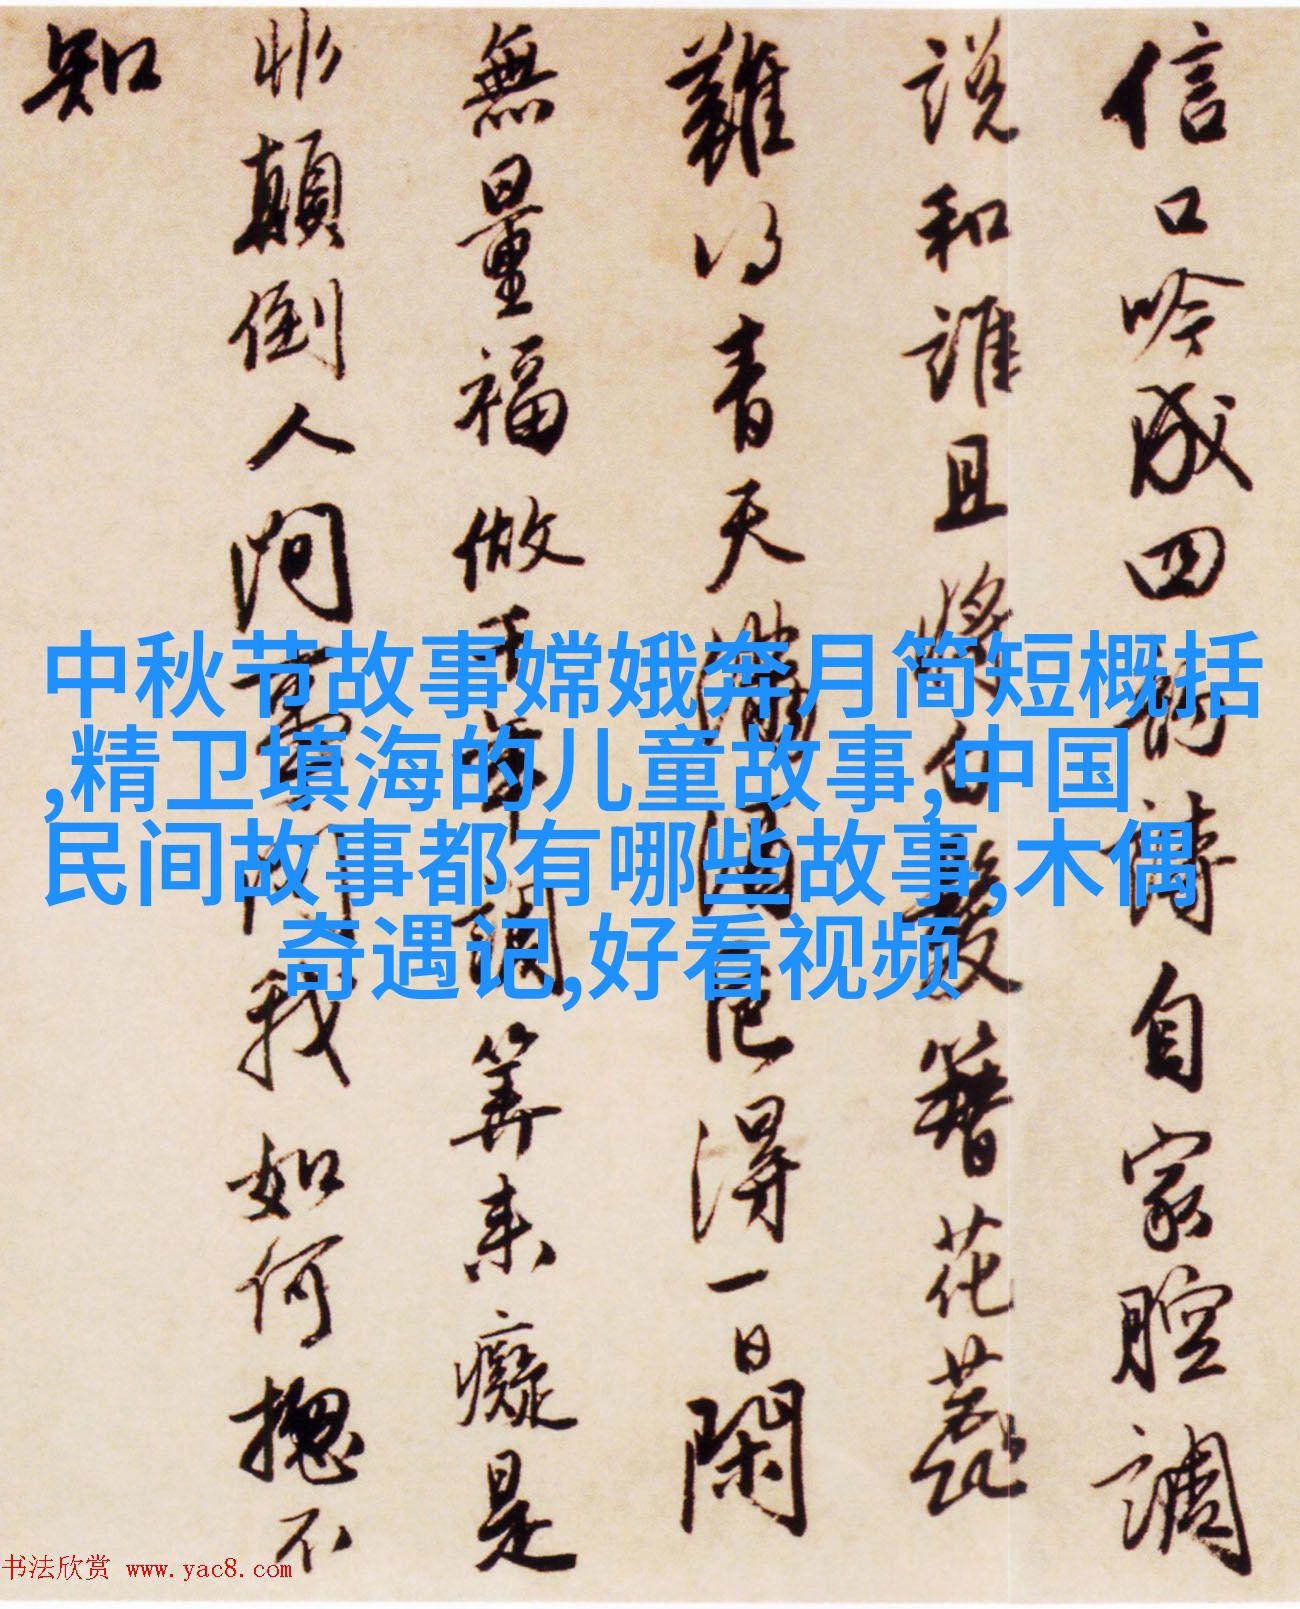 信口吟成四韵诗自家腔调
说和谁且将白发簪花蕊
难得青天满酒卮得一日闲
无量福做千年调笑来痴是
非颠倒人间事问我如何揔不
知
中秋节故事嫦娥奔月简短概括
,精卫填海的儿童故事,中国
民间故事都有哪些故事,木偶
奇遇记,好看视频
书法欣赏 www.yac8.com